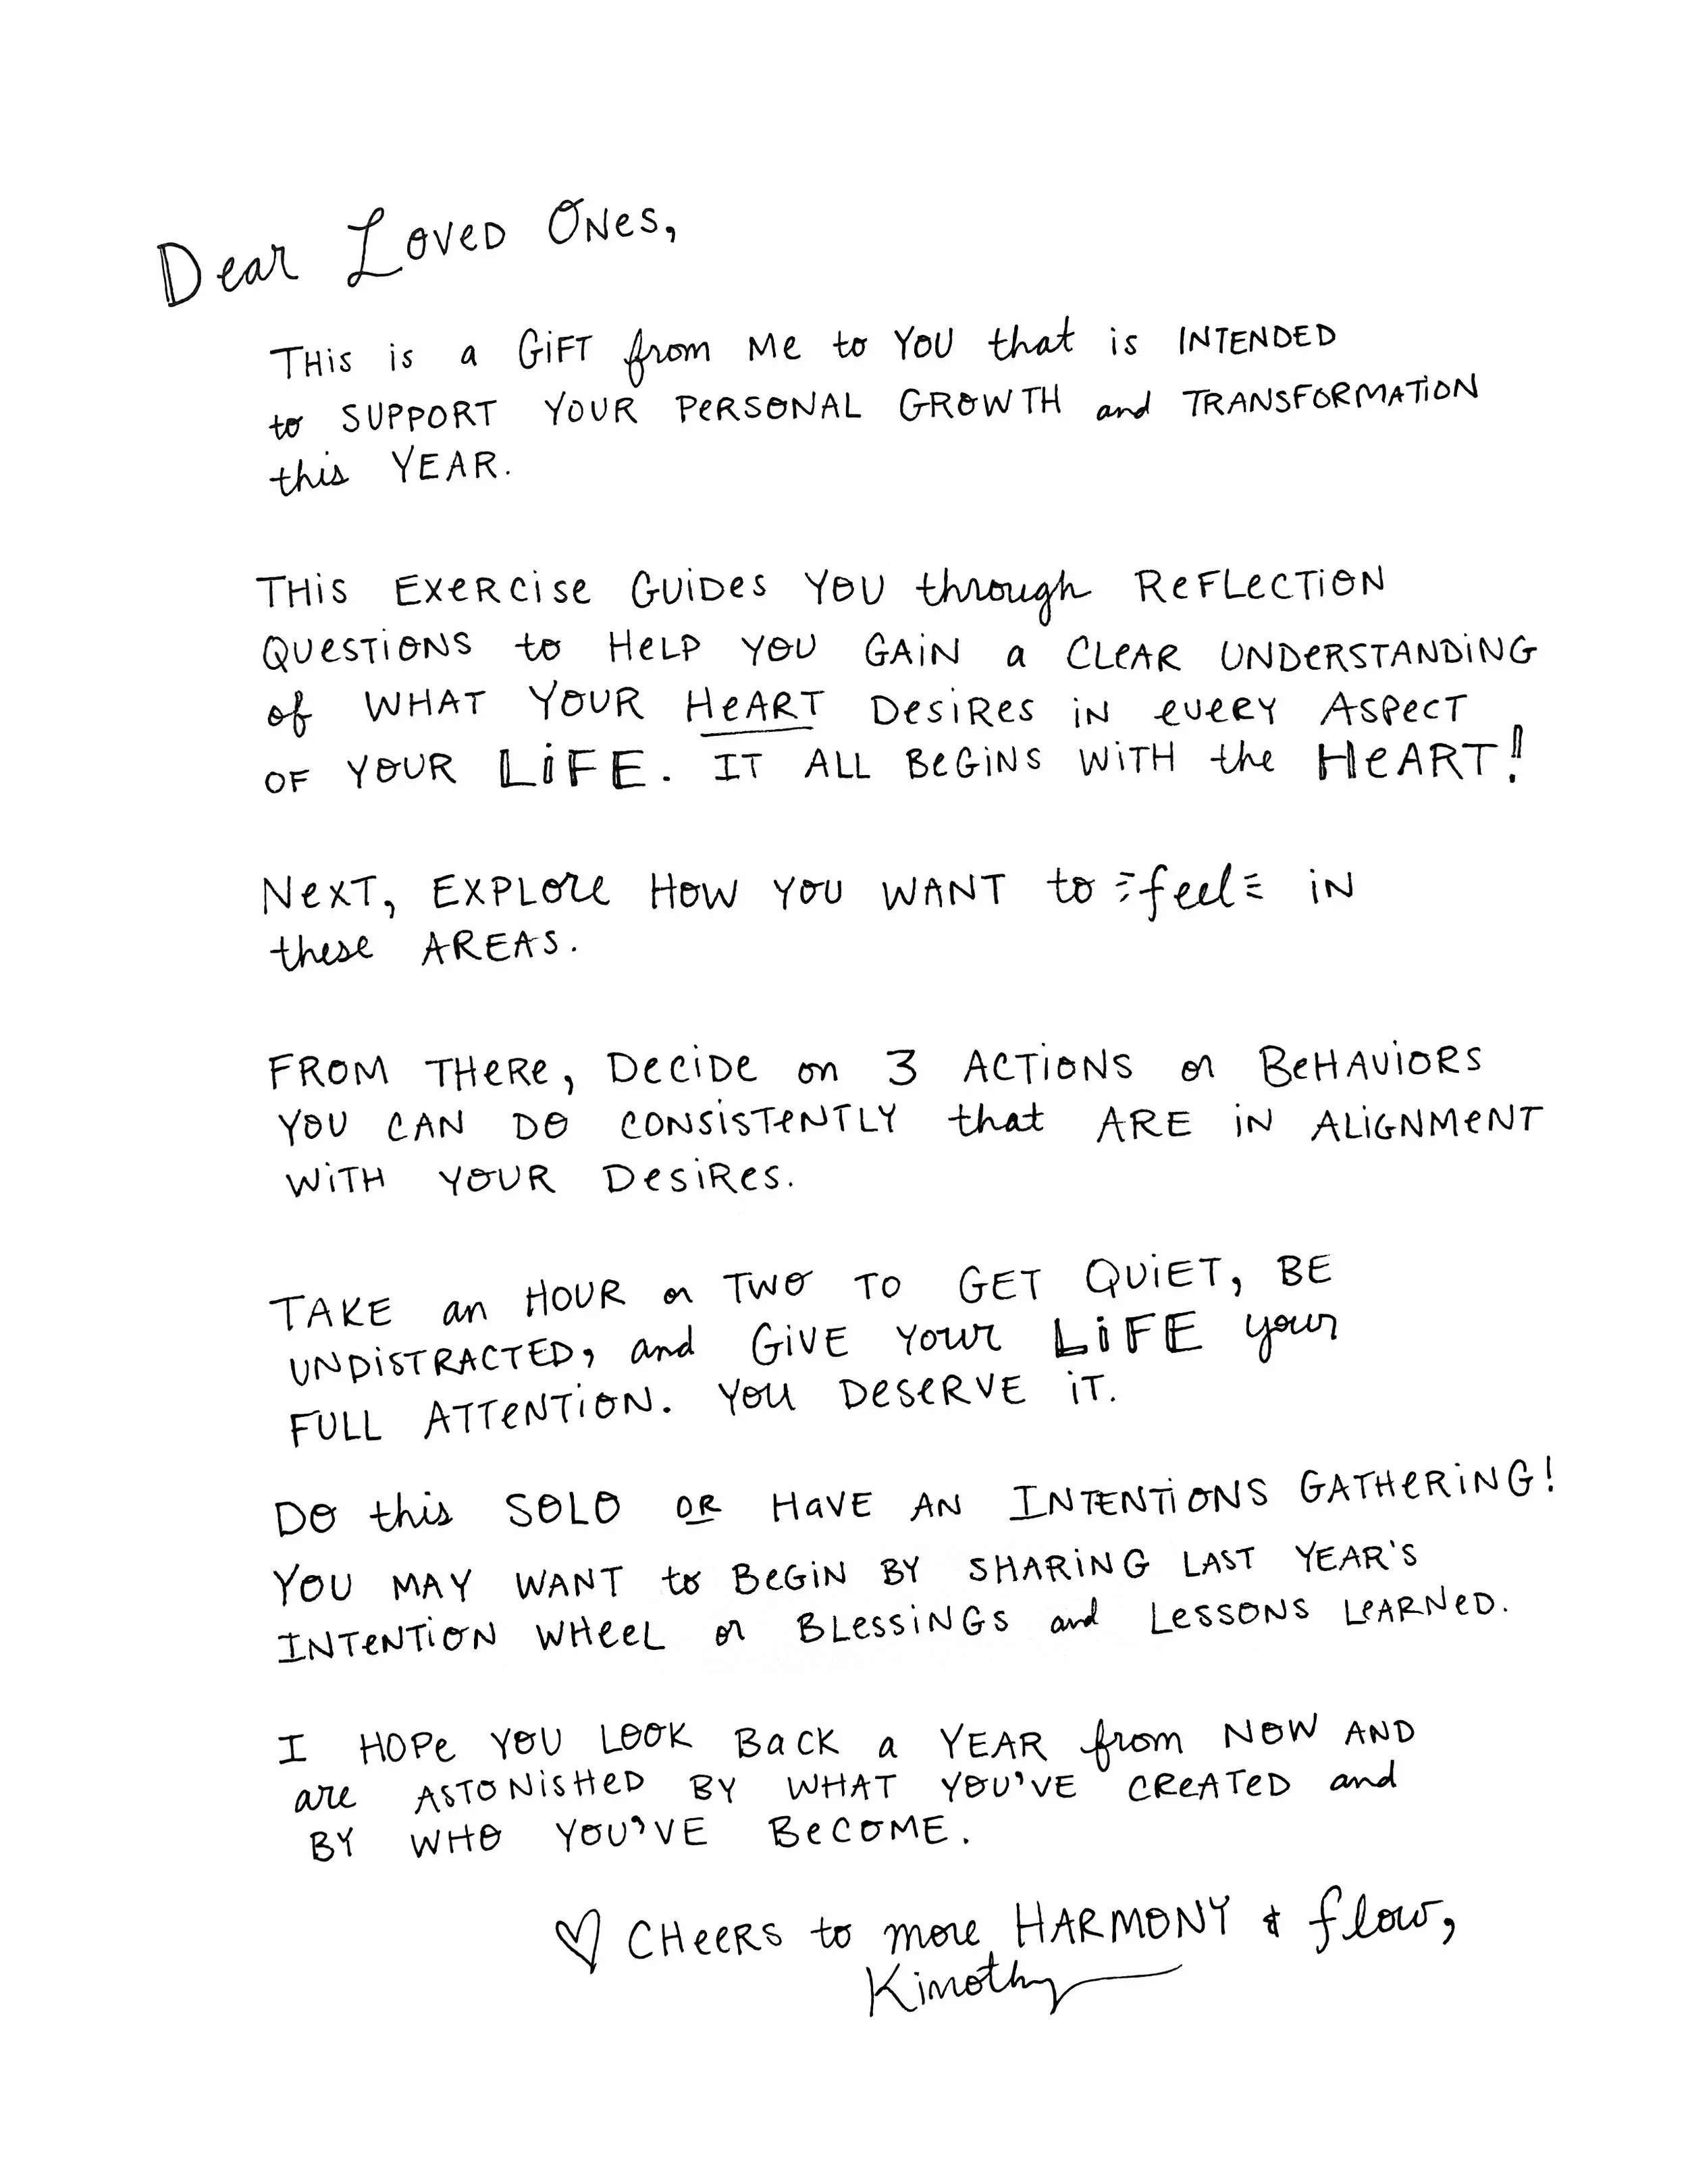 Dear Loved Ones,
THis is a GiFT from Me to YOU that is INTENDED
to SUPPORT YOUR PeRSONAL GROWTH and TRANSFORMATiON
this YEAR.
THis ExeRcise GuiDes YOU through ReFLecTiON
QuesTiONS to HeLP YOU GAiN a CLeAR UNDeRSTANDiNG
of WHAT YOUR HeART DesiRes iN eveRY AsPecT
OF YOUR LiFE. IT ALL BeGiNS WiTH the HeART!
NexT, EXPLORe HOW YOU WANT to feel iN
these AREAS.
FROM THeRe, DeciDe on 3 ACTiONS or BeHAViORS
YOU CAN DO CONSiSTeNTLY that ARE iN ALiGNMeNT
WiTH YOUR DesiRes.
TAKE an HOUR or TWO TO GET QUiET, BE
UNDiSTRACTED, and GiVE YOur LiFE your
FULL ATTeNTiON. YOU DeseRVE iT.
DO this SOLO OR HaVE AN INTENTiONS GATHeRiNG!
YOU MAY WANT to BeGiN BY SHARiNG LAST YEAR'S
INTeNTiON WHeeL or BLessiNGS and LessONS LeARNeD.
I HOPe YOU LOOK BacK a YEAR from NOW AND
are ASTONisHeD BY WHAT YOU'VE CReATeD and
BY WHO YOU'VE BeCOME.
♡ CHeeRS to more HARMONY & flow,
Kimothy